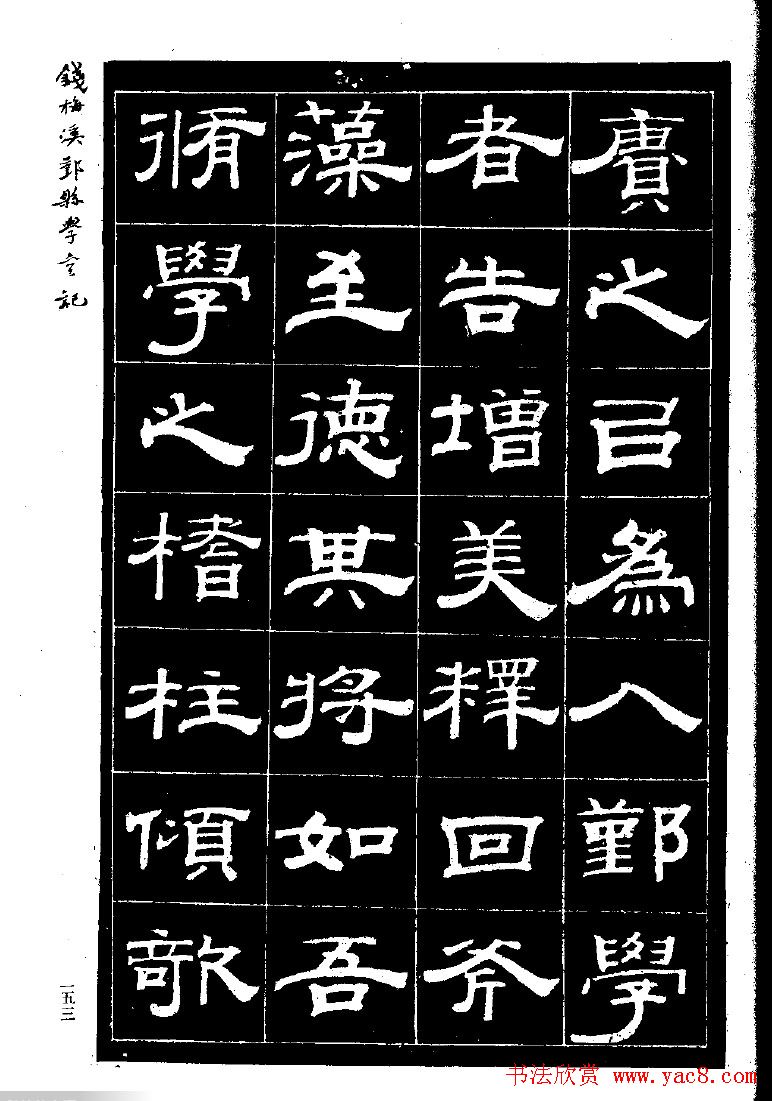 賡之㠯爲人鄞學
者告增美釋回斧
藻至德其將如吾
脩學之榰柱傾欹
錢梅溪鄞縣學宮記
一五三
书法欣赏 www.yac8.com